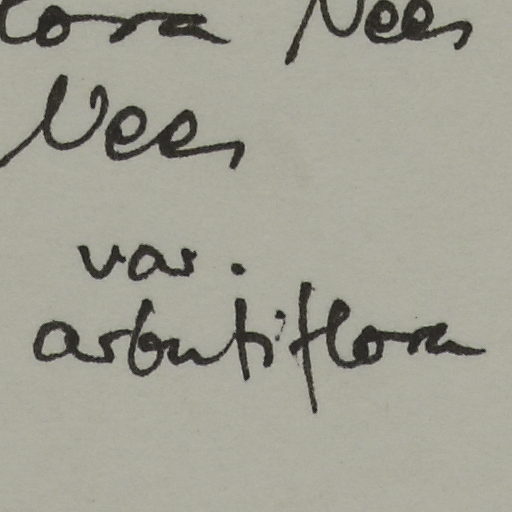 lora Nees
Nees
var.
arbutiflora